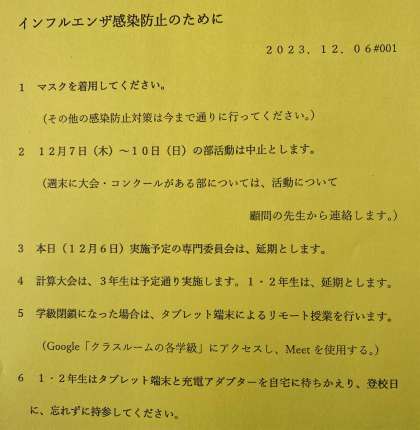 インフルエンザ感染防止のために
２０２３．１２．０６#001
１　マスクを着用してください。
（その他の感染防止対策は今まで通りに行ってください。）
２　１２月７日（木）～１０日（日）の部活動は中止とします。
（週末に大会・コンクールがある部については、活動について
顧問の先生から連絡します。）
３　本日（１２月６日）実施予定の専門委員会は、延期とします。
４　計算大会は、３年生は予定通り実施します。１・２年生は、延期とします。
５　学級閉鎖になった場合は、タブレット端末によるリモート授業を行います。
（Google「クラスルームの各学級」にアクセスし、Meetを使用する。）
６　１・２年生はタブレット端末と充電アダプターを自宅に待ちかえり、登校日
に、忘れずに持参してください。